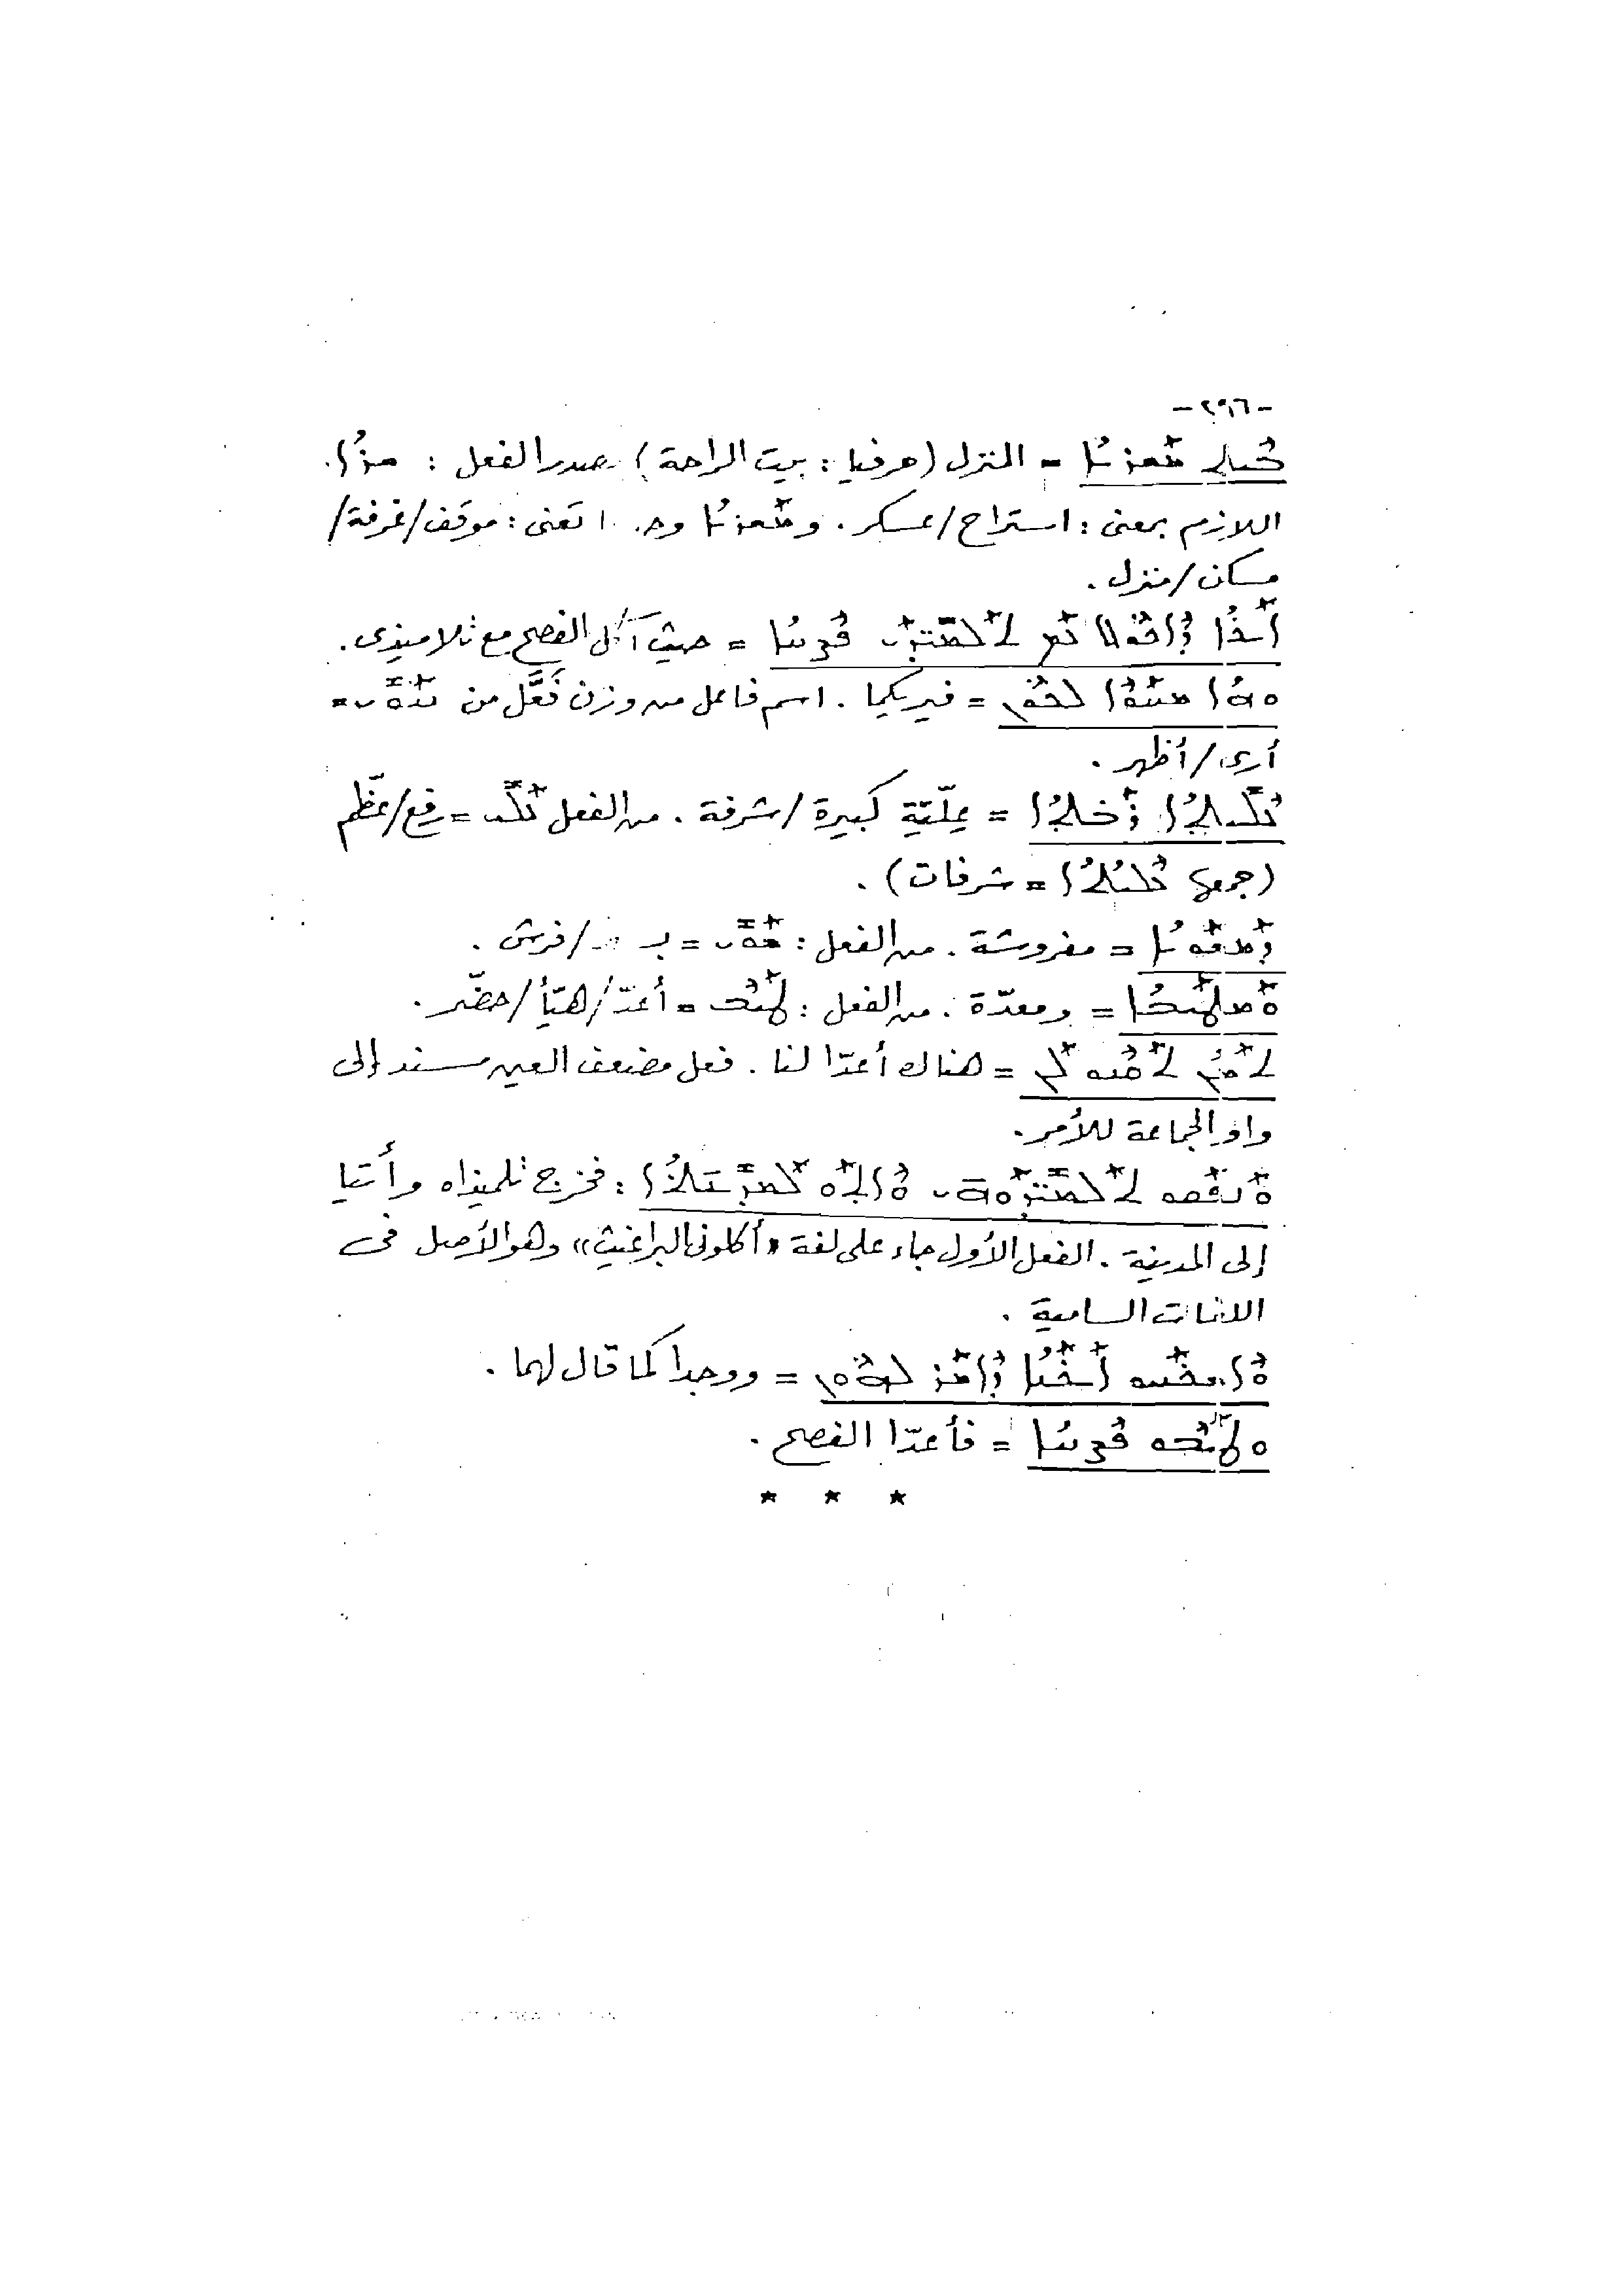 -٢٩٦-
ܒܝܬ ܡܫܪܝܐ = المنزل (حرفيا : بيت الراحة) صدر الفعل : ܫܪܐ.
اللازم بمعنى : استراح/عسكر. و ܡܫܪܝܐ تعنى : موقف/غرفة/
مسكن/منزل .
ܐܝܟܐ ܕܐܟܘܠ ܥܡ ܬܠܡܝܕܝ ܦܨܚܐ = حيث آكل الفصح مع تلاميذى.
ܘܗܐ ܡܚܘܐ ܠܟܘܢ = فيريكما . اسم فاعل من وزن فَعَّل من ܚܘܝ =
أرى/أظهر .
ܥܠܝܬܐ ܪܒܬܐ = عِلّيّة كبيرة /شرفة . من الفعل ܥܠܝ = رفع/عظّم
(جمعها ܥܠܝܬܐ = شرفات) .
ܕܡܫܘܝܐ = مفروشة . من الفعل : ܫܘܝ = /فرش .
ܘܡܛܝܒܐ = ومعدّة . من الفعل : ܛܝܒ = أعدّ/هيّأ/حضّر .
ܬܡܢ ܬܩܢܘ ܠܢ = هناك أعدّا لنا . فعل مضعف العين مسند إلى
واو الجماعة للأمر.
ܘܢܦܩܘ ܬܠܡܝܕܘܗܝ ܘܐܬܘ ܠܡܕܝܢܬܐ : فخرج تلميذاه وأتيا
إلى المدينة . الفعل الأول جاء على لغة «أكلونى البراغيث» وهو الأصل فى
اللغات السامية .
ܘܐܫܟܚܘ ܐܝܟܢܐ ܕܐܡܪ ܠܗܘܢ = ووجدا كما قال لهما .
ܘܛܝܒܘ ܦܨܚܐ = فأعدّا الفصح .
* * *